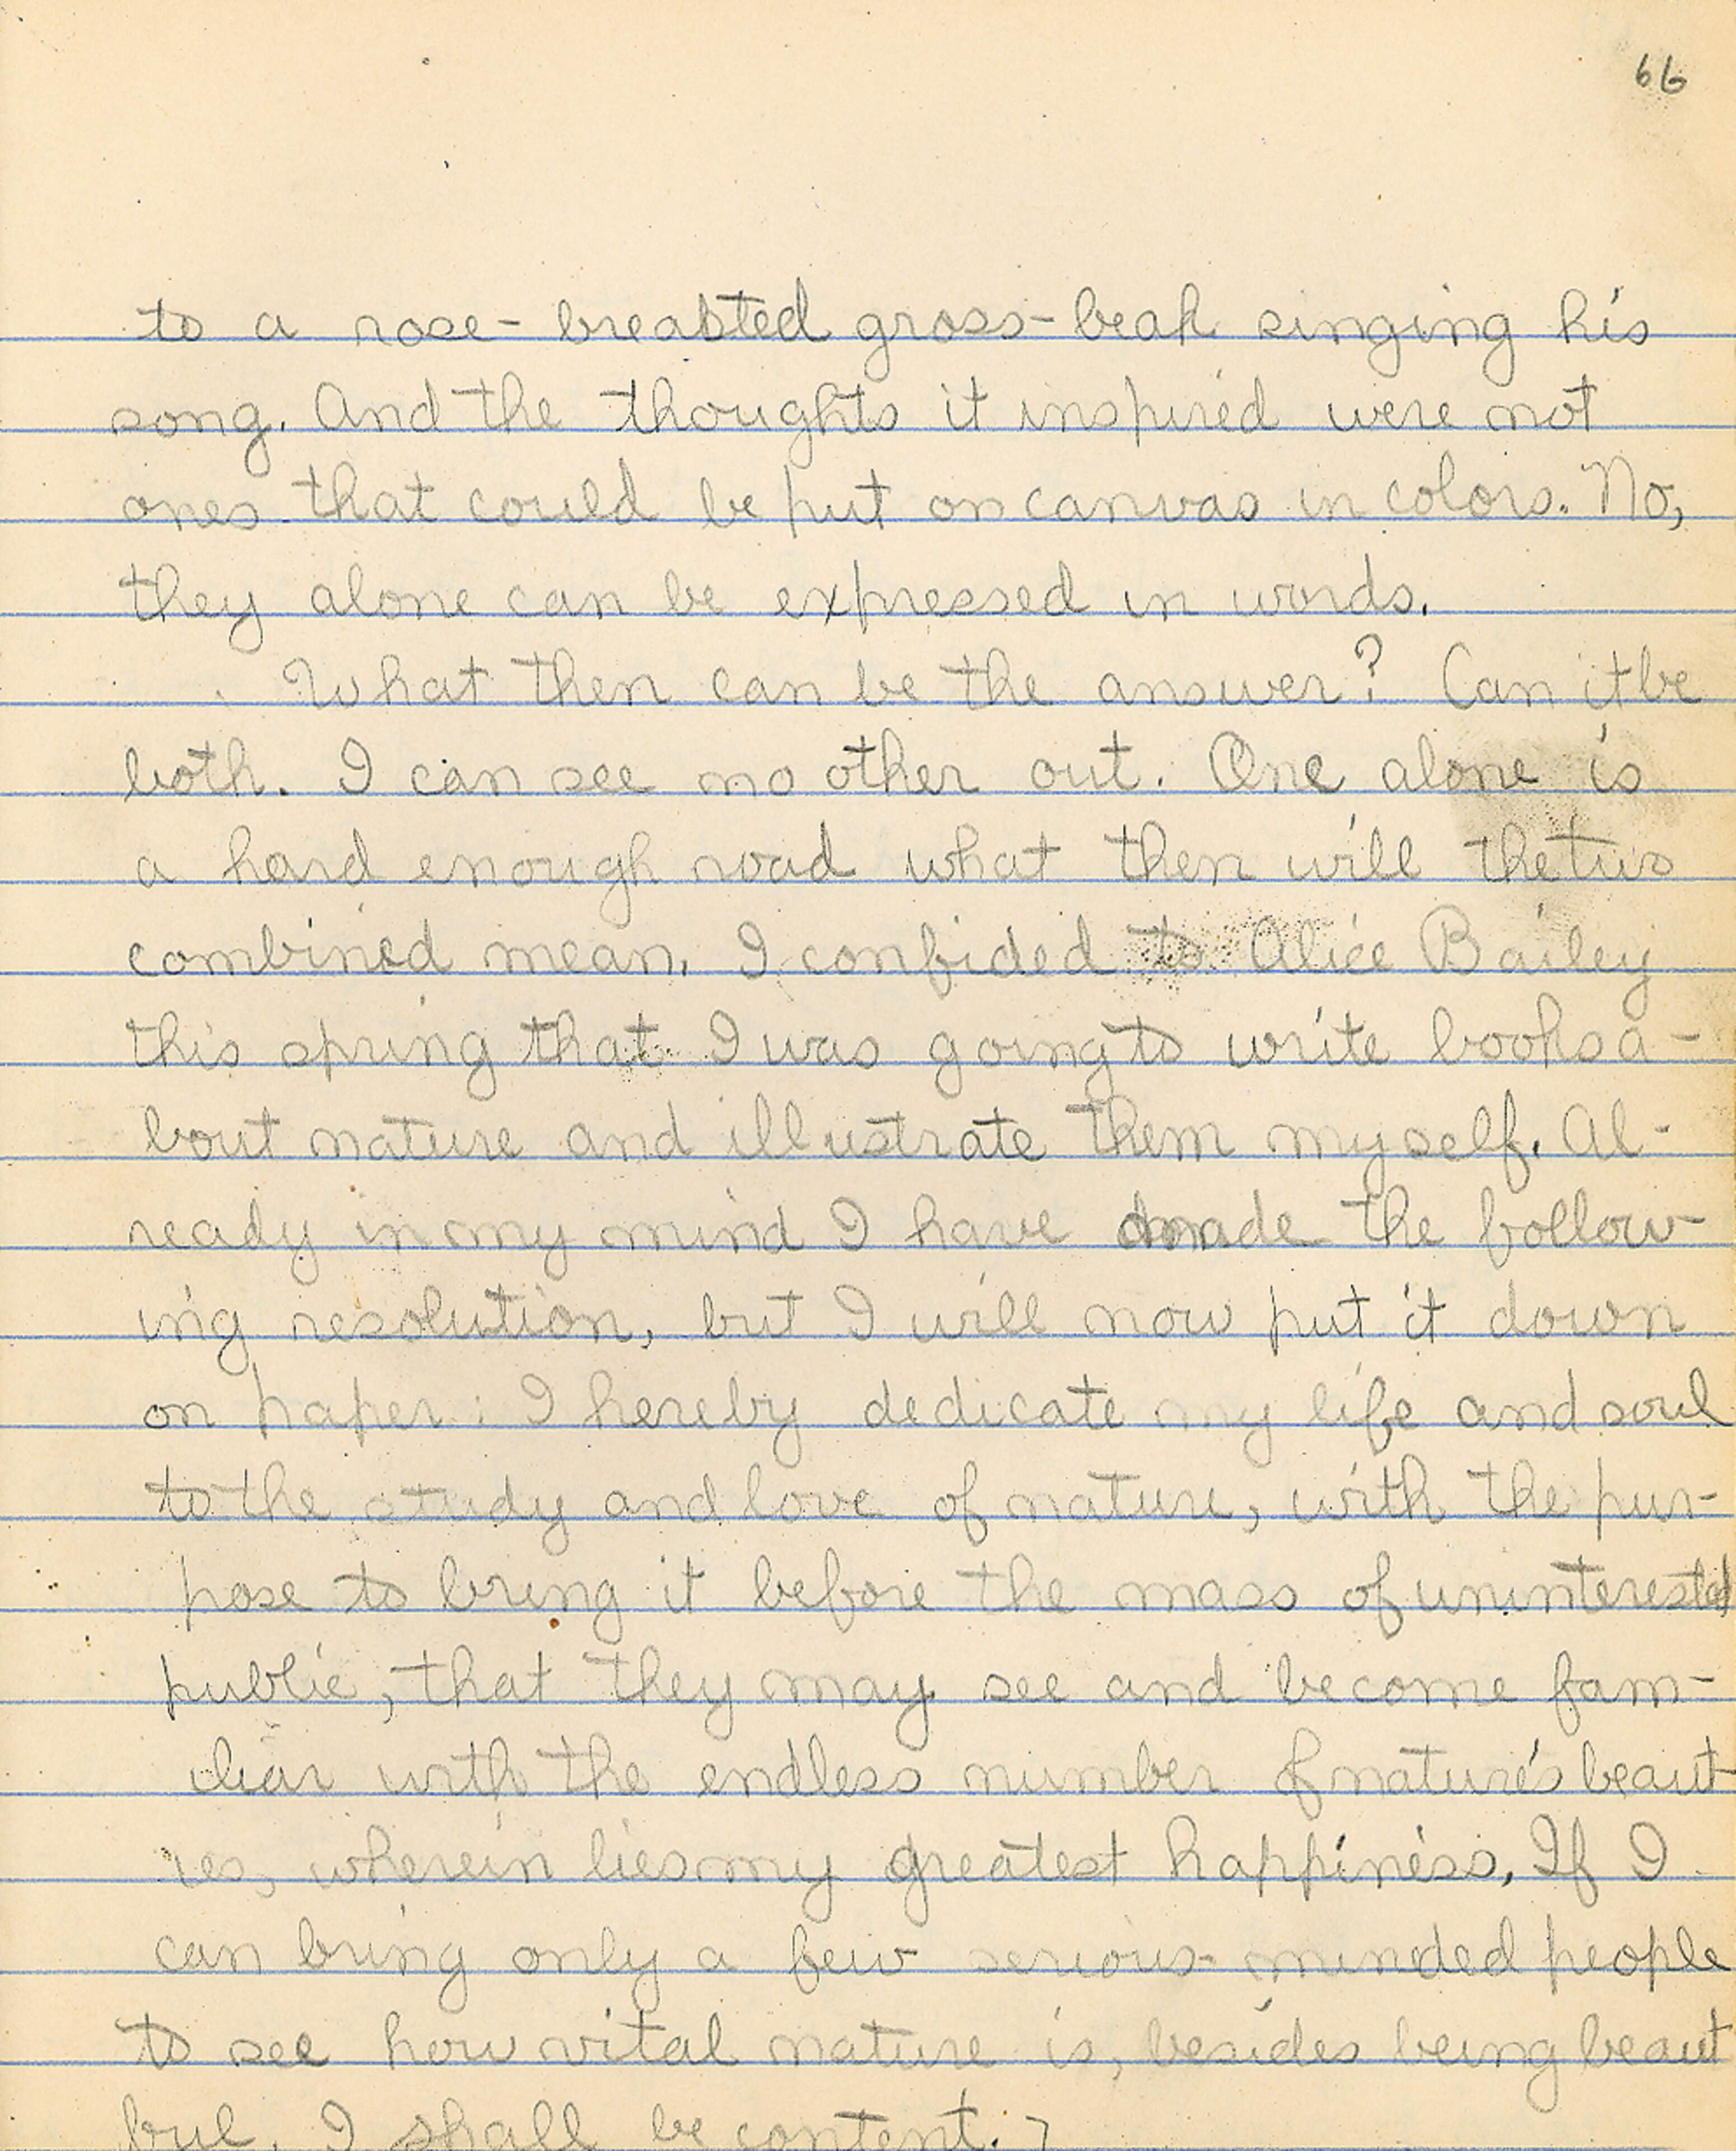 66
to a rose-breasted gross-beak singing his
song. And the thoughts it inspired were not
ones that could be put on canvas in colors. No,
they alone can be expressed in words.
What then can be the answer? Can it be
both. I can see no other out. One alone is
a hard enough road what then will the two
combined mean. I confided to Alice Bailey
this spring that I was going to write books a-
bout nature and illustrate them myself. Al-
ready in my mind I have made the follow-
ing resolution, but I will now put it down
on paper: I hereby dedicate my life and soul
to the study and love of nature, with the pur-
pose to bring it before the mass of uninterested
public, that they may see and become fam-
iliar with the endless number of nature's beaut-
ies, wherein lies my greatest happiness. If I
can bring only a few serious-minded people
to see how vital nature is, besides being beaut
ful, I shall be content.